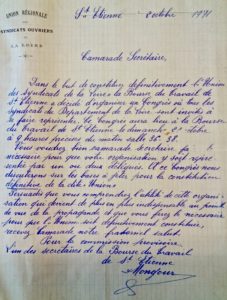 UNION RÉGIONALE
DES
SYNDICATS OUVRIERS
DE
LA LOIRE
St Etienne octobre 1911
Camarade Secrétaire,
Dans le but de constituer définitivement l'Union
des Syndicats de la Loire la Bourse du travail de
St Etienne a décidé d'organiser un Congrès où tous les
Syndicats du Département de la Loire sont invités à
se faire représenter. Ce Congrès aura lieu à la Bourse
du travail de St Etienne le dimanche octobre
à 9 heures précises du matin salle
Vous voudrez bien camarade secrétaire faire le
nécessaire pour que votre organisation y soit représentée
par un ou deux délégués. A ce congrès nous
discuterons sur les bases à jeter pour la constitution
définitive de la dite Union.
Persuadés que vous comprendrez l'utilité de cette organisation
qui devient de plus en plus indispensable au point
de vue de la propagande et que vous ferez le nécessaire
pour que l'Union soit définitivement constituée,
recevez camarade notre fraternel salut.
Pour la commission provisoire
L'un des secrétaires de la Bourse du travail
de St Etienne